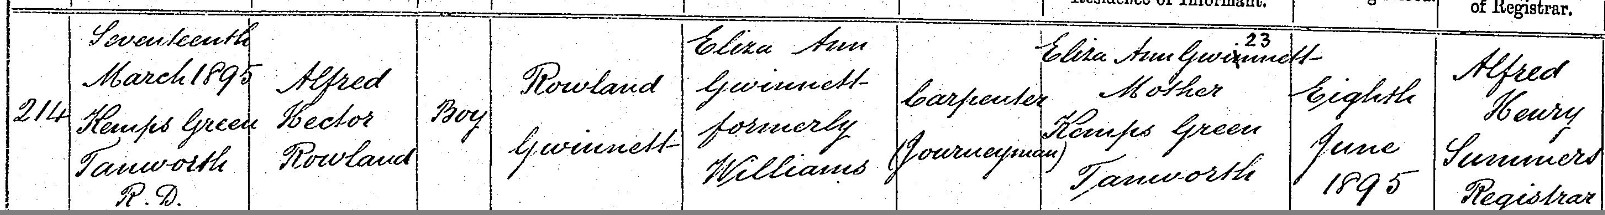 Residence of Informant.
of Registrar.
214
Seventeenth
March 1895
Kemps Green
Tanworth
R.D.
Alfred
Hector
Rowland
Boy
Rowland
Gwinnett
Eliza Ann
Gwinnett
formerly
Williams
Carpenter
(Journeyman)
23
Eliza Ann Gwinnett
Mother
Kemps Green
Tanworth
Eighth
June
1895
Alfred
Henry
Summers
Registrar